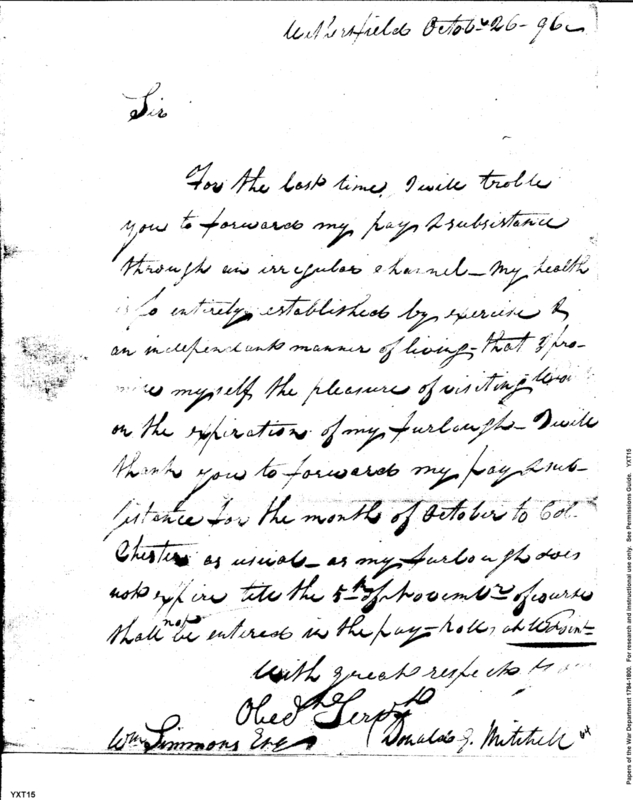 Withersfield Octobr 26 - 96
Sir
For the last time, I will troble
you to forward my pay & subsistance
through an irregular channel - My health
is so entirely established by exercise &
an independant manner of living, that I pro-
mise myself the pleasure of visiting
on the expiration of my furlough - I will
thank you to forward my pay & sub-
sistance for the month of October to Col-
Chester as usual - as my furlough does
not expire till the 5th of Novembr of course
shall not be entered in the pay-rolls at W Point
With great respect
Obedt Servt
Wm Simmons Esq Donald G. Mitchell
YXT15
Papers of the War Department 1784-1800. For research and instructional use only. See Permissions Guide. YXT15